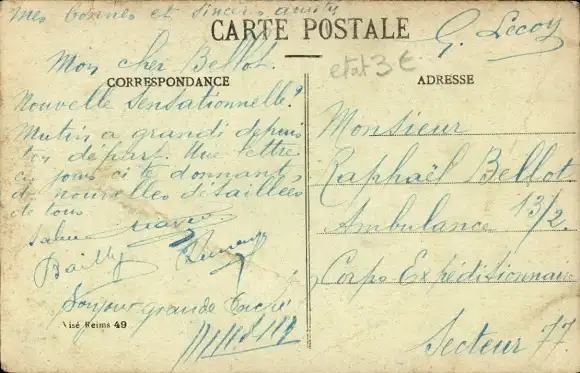 Mes bonnes et sincères amitiés
CARTE POSTALE
G. Lecoy
etat 3 €
Mon cher Bellot.
CORRESPONDANCE
ADRESSE
Nouvelle Sensationnelle !
Mutin a grandi depuis
ton départ. Une lettre
ces jours ci te donnant
de nouvelles détaillées
de tous.
Salue
Bailly
Bonjour grande
Visé Reims 49
Monsieur
Raphaël Bellot
Ambulance 13/2.
Corps Expéditionnaire
Secteur 77.